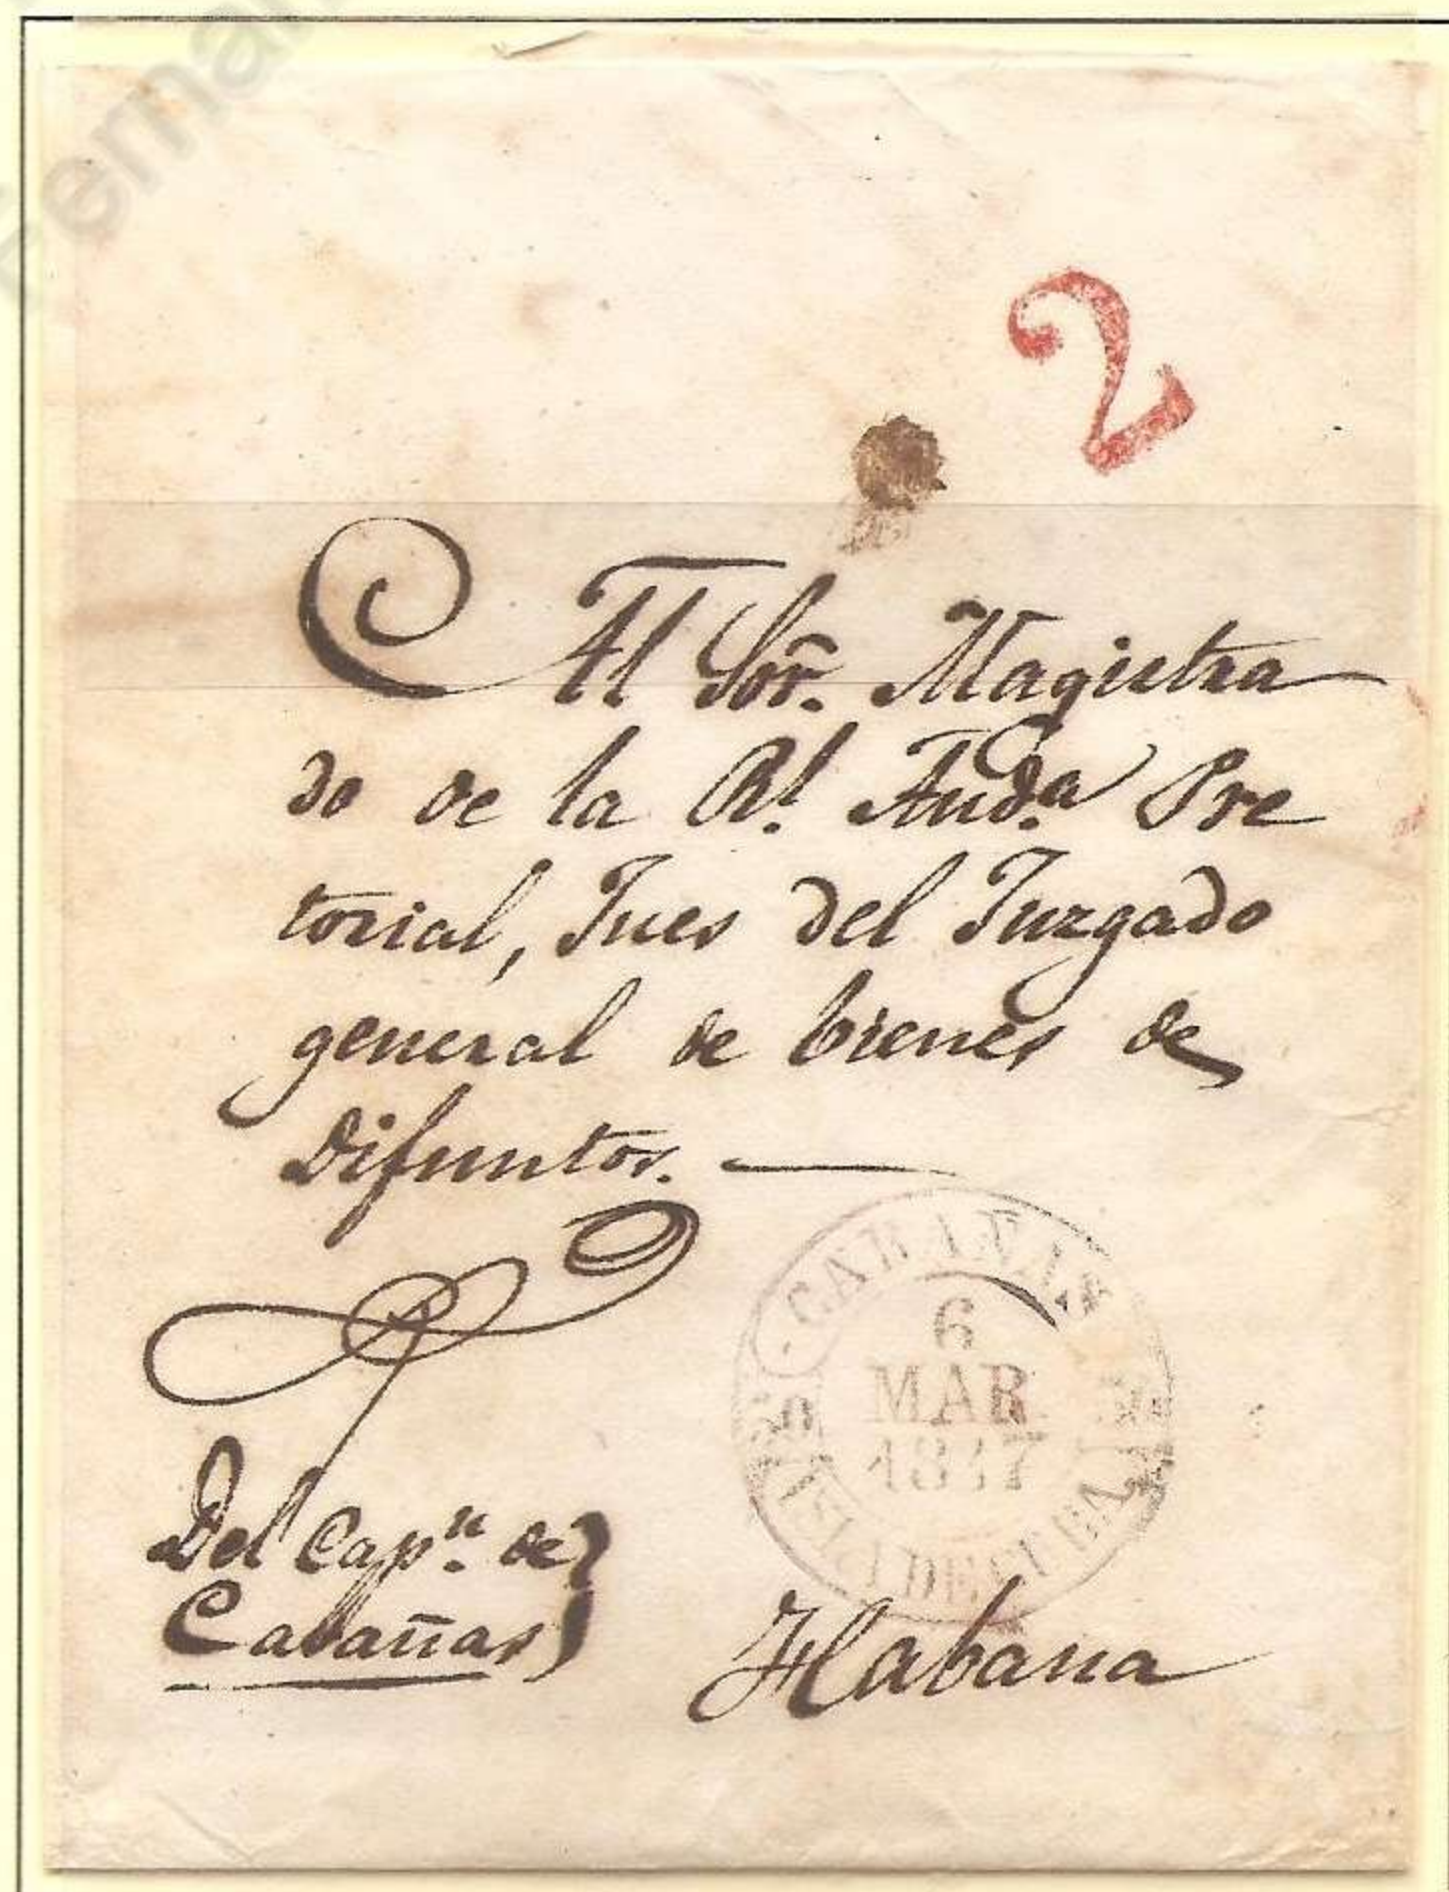 2
Al Sor̃. Magistra
do de la Rl. Auda. Pre
torial, Jues del Juzgado
general de bienes de
Difuntos.
6
MAR
1847
Del Capn. de
Cabañas
Habana